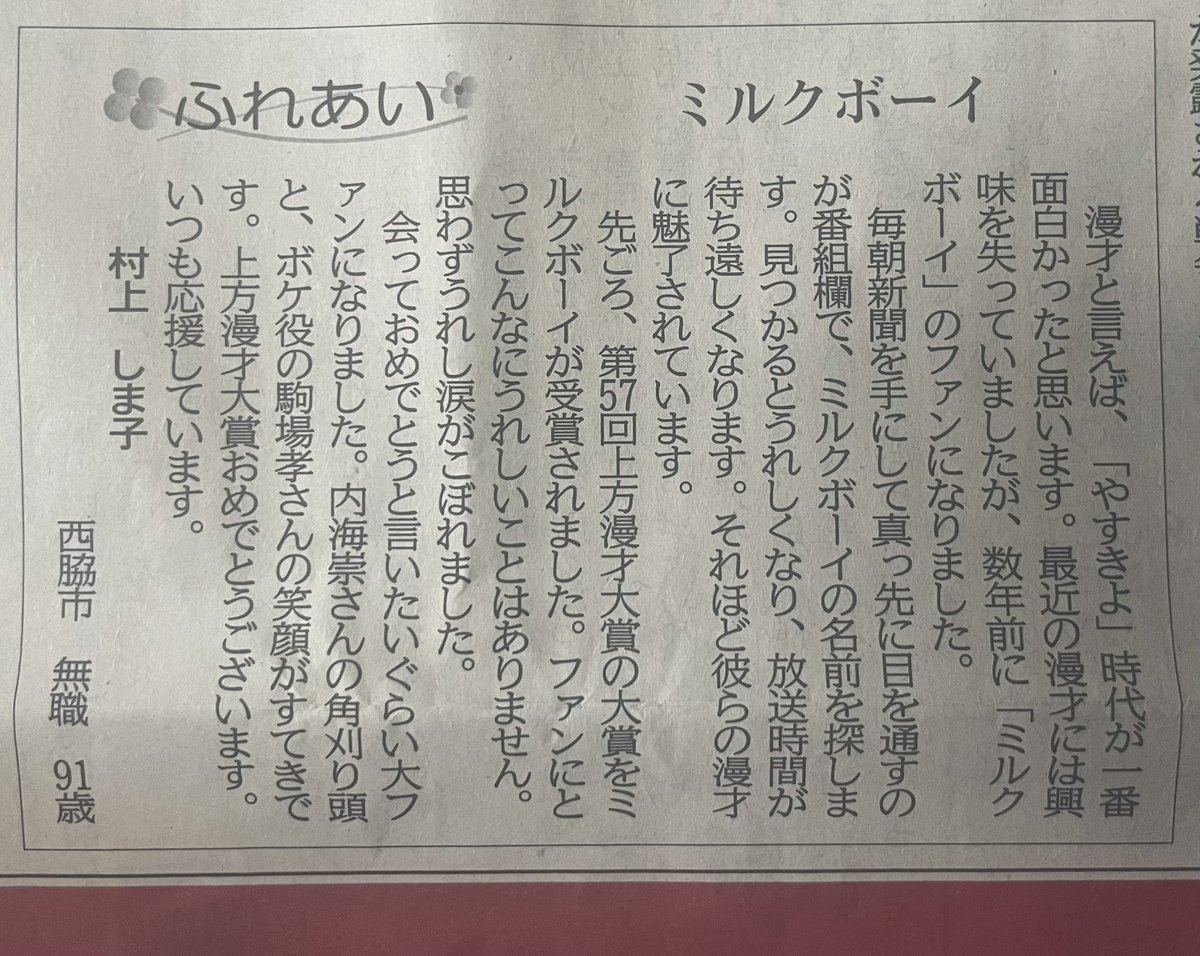 ミルクボーイ
ふれあい
漫才と言えば、「やすきよ」時代が一番
面白かったと思います。最近の漫才には興
味を失っていましたが、数年前に「ミルク
ボーイ」のファンになりました。
毎朝新聞を手にして真っ先に目を通すの
が番組欄で、ミルクボーイの名前を探しま
す。見つかるとうれしくなり、放送時間が
待ち遠しくなります。それほど彼らの漫才
に魅了されています。
先ごろ、第57回上方漫才大賞の大賞をミ
ルクボーイが受賞されました。ファンにと
ってこんなにうれしいことはありません。
思わずうれし涙がこぼれました。
会っておめでとうと言いたいぐらい大フ
ァンになりました。内海崇さんの角刈り頭
と、ボケ役の駒場孝さんの笑顔がすてきで
す。上方漫才大賞おめでとうございます。
いつも応援しています。
村上 しま子
西脇市 無職 91歳